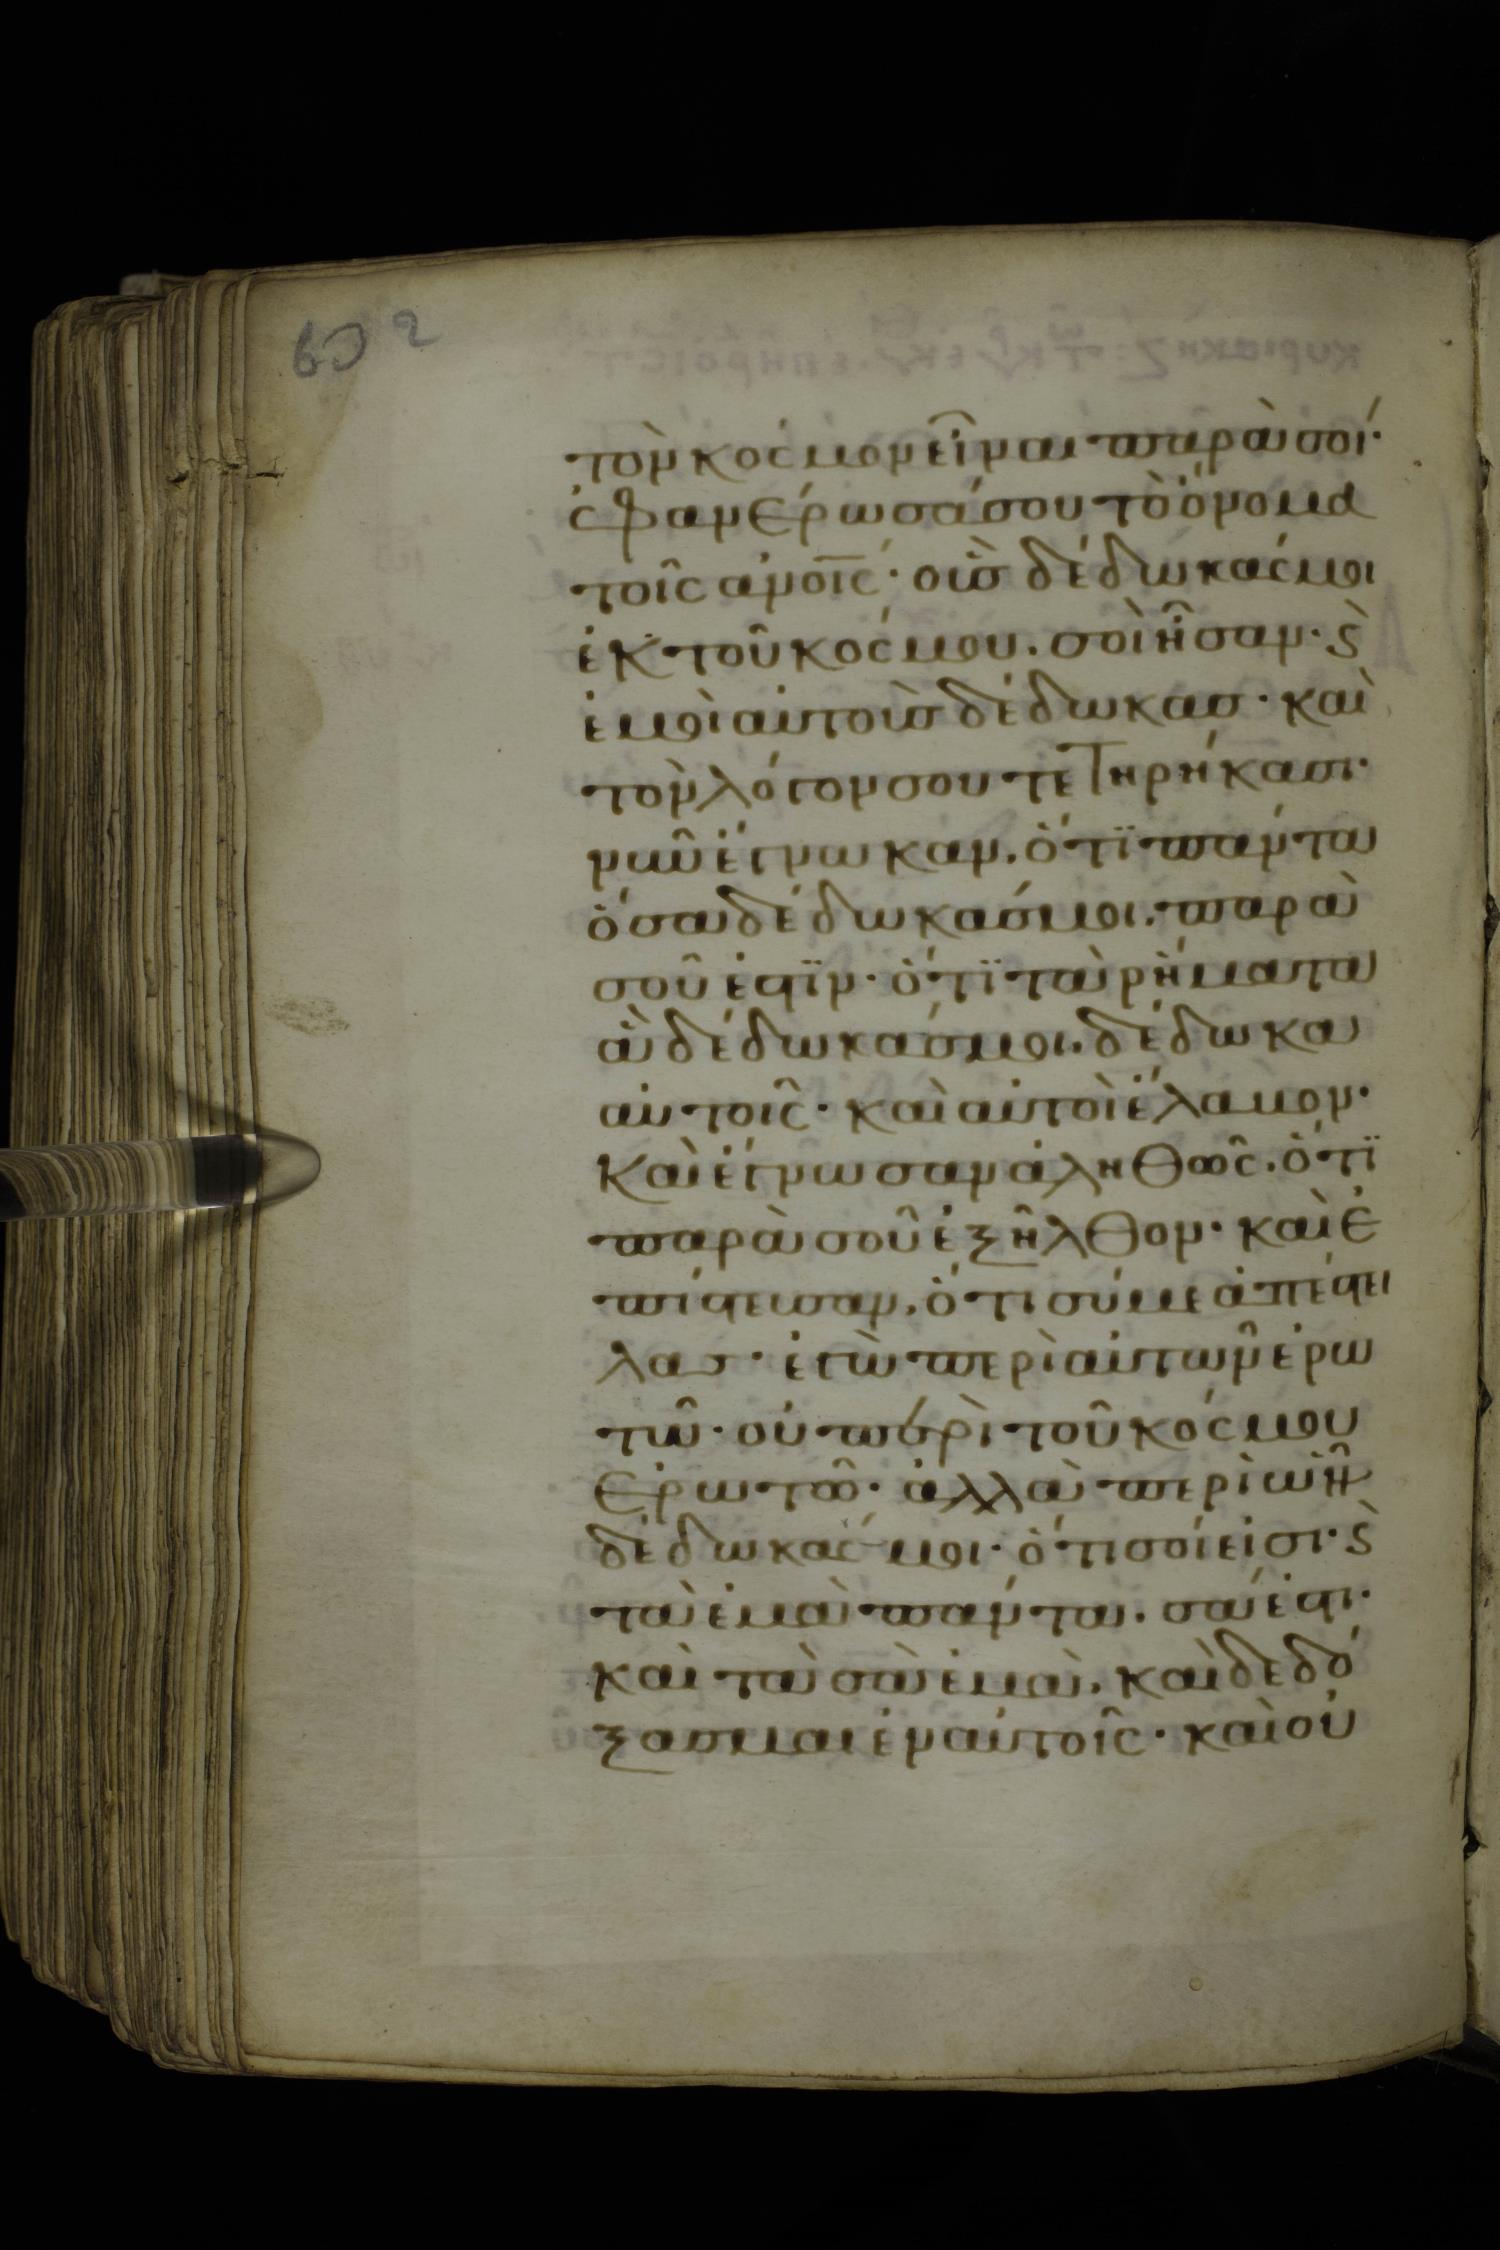 τὸν κόσμον εἶναι παρὰ σοί·
ἐφανέρωσά σου τὸ ὄνομα
τοῖς ἀνοις· οὓς δέδωκάς μοι
ἐκ τοῦ κόσμου. σοὶ ἦσαν· ϛ̀
ἐμοὶ αὐτοὺς δέδωκας· καὶ
τὸν λόγον σου τετηρήκασι·
νῦν ἔγνωκαν. ὅτϊ πάντα
ὅσα δέδωκάς μοι. παρὰ
σοῦ ἐϛϊν· ὅτϊ τὰ ῥήματα
ἃ δέδωκάς μοι. δέδωκα
αὐτοῖς· καὶ αὐτοὶ ἔλαβον·
καὶ ἔγνωσαν ἀληθῶς. ὅτϊ
παρὰ σοῦ ἐξῆλθον· καὶ ἐ
πίϛευσαν. ὅτι σύ με ἀπέϛει
λας· ἐγὼ περὶ αὐτῶν ἐρω
τῶ· οὐ περὶ τοῦ κόσμου
ἐρωτῶ· ἀλλὰ περὶ ὧν
δέδωκάς μοι· ὅτι σοί εἰσι· ϛ̀
τὰ ἐμὰ πάντα. σά ἐϛι·
καὶ τὰ σὰ ἐμά. καὶ δεδό
ξασμαι ἐν αὐτοῖς· καὶ οὐ